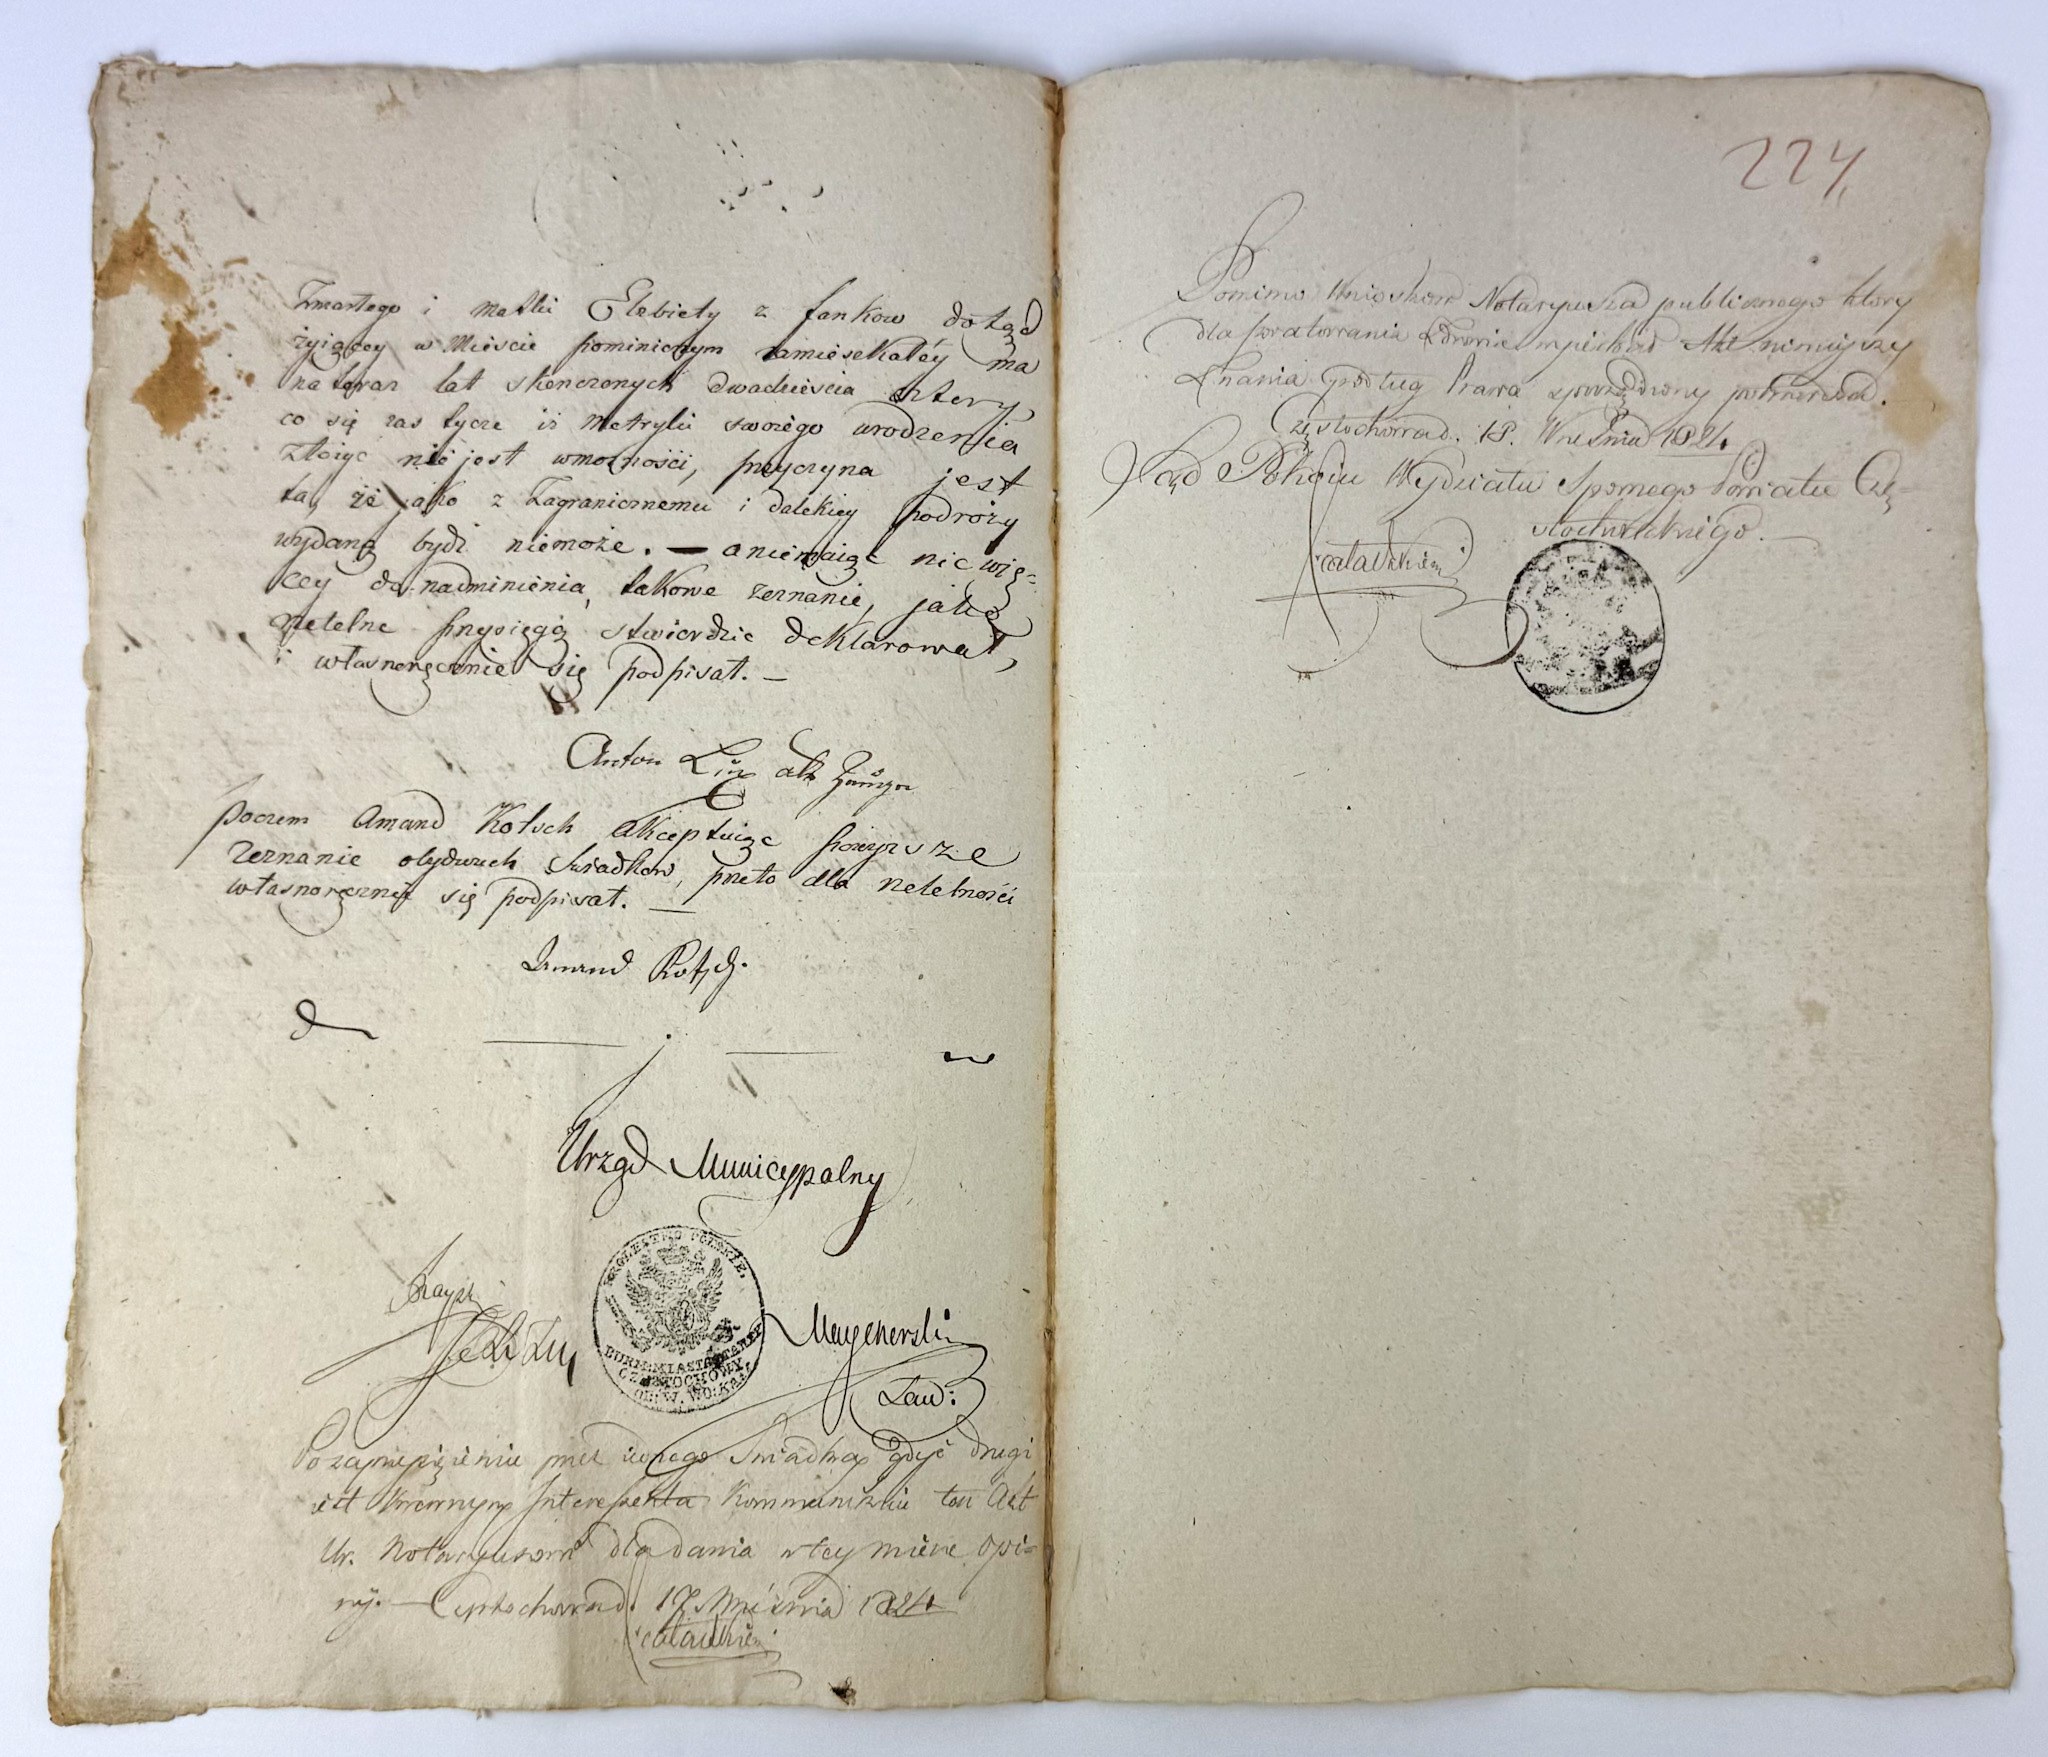 Zmarłego i Matki Elzbiety z Jankow dotąd
żyiącey w Mieście pominionym zamieszkałéy ma
na teraz lat skonczonych dwadzieścia cztery,
co się zas tycze iż Metryki swoiego urodzenia
złożyć nié jest wmożnośći, przyczyna jest
ta, że jako z Zagranicznemu i dalekiey podroży
wydaną bydź niemoże. — a niémaiąc nic wię=
cey do nadminiénia, takowe zeznanie, jako
rzetelne przysięgą stwierdzic deklarował,
i własnoręcznie się podpisał. —
Anton als Zeuge
poczem Amand Kotsch Akceptuiąc powyzsze
zeznanie obydwuch Swiadkow, przeto dla rzetelnośći
własnoręcznie się podpisał. —
Amand Kotsch.
Urząd Municypalny
KROLESTWO POLSKIE.
BURM: MIASTA STAREY
CZĘSTOCHOWY.
OB: W. WO: KA:
Ław:
Po zaprzysiężeniu przez iednego Swiadka gdyż drugi
iest krewnym Interessenta kommunikuie ten Akt
Ur. Notaryuszowi dla dania wtey mierze opi=
nij. — Częstochowa d. 17 Września 1824
224.
Pomimo Wniosków Notaryusza publicznego ktory
dla Akt ninieyszy
Znania podług Prawa sporządzony potwierdza.
Częstochowa d. 18. Września 1824
Sąd Pokoiu Wydziału Spornego Powiatu Czę=
stochowskiego. —